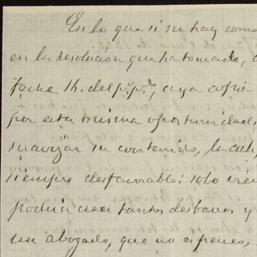 En lo que si no hay como
en la resolucion que ha tomado,
fecha 14. del p.º p.do cuya copia
por esta misma oportunidad,
su contenido, la cul
siempre desfavorable: solo
podria usar tantos
un abogado, que no es